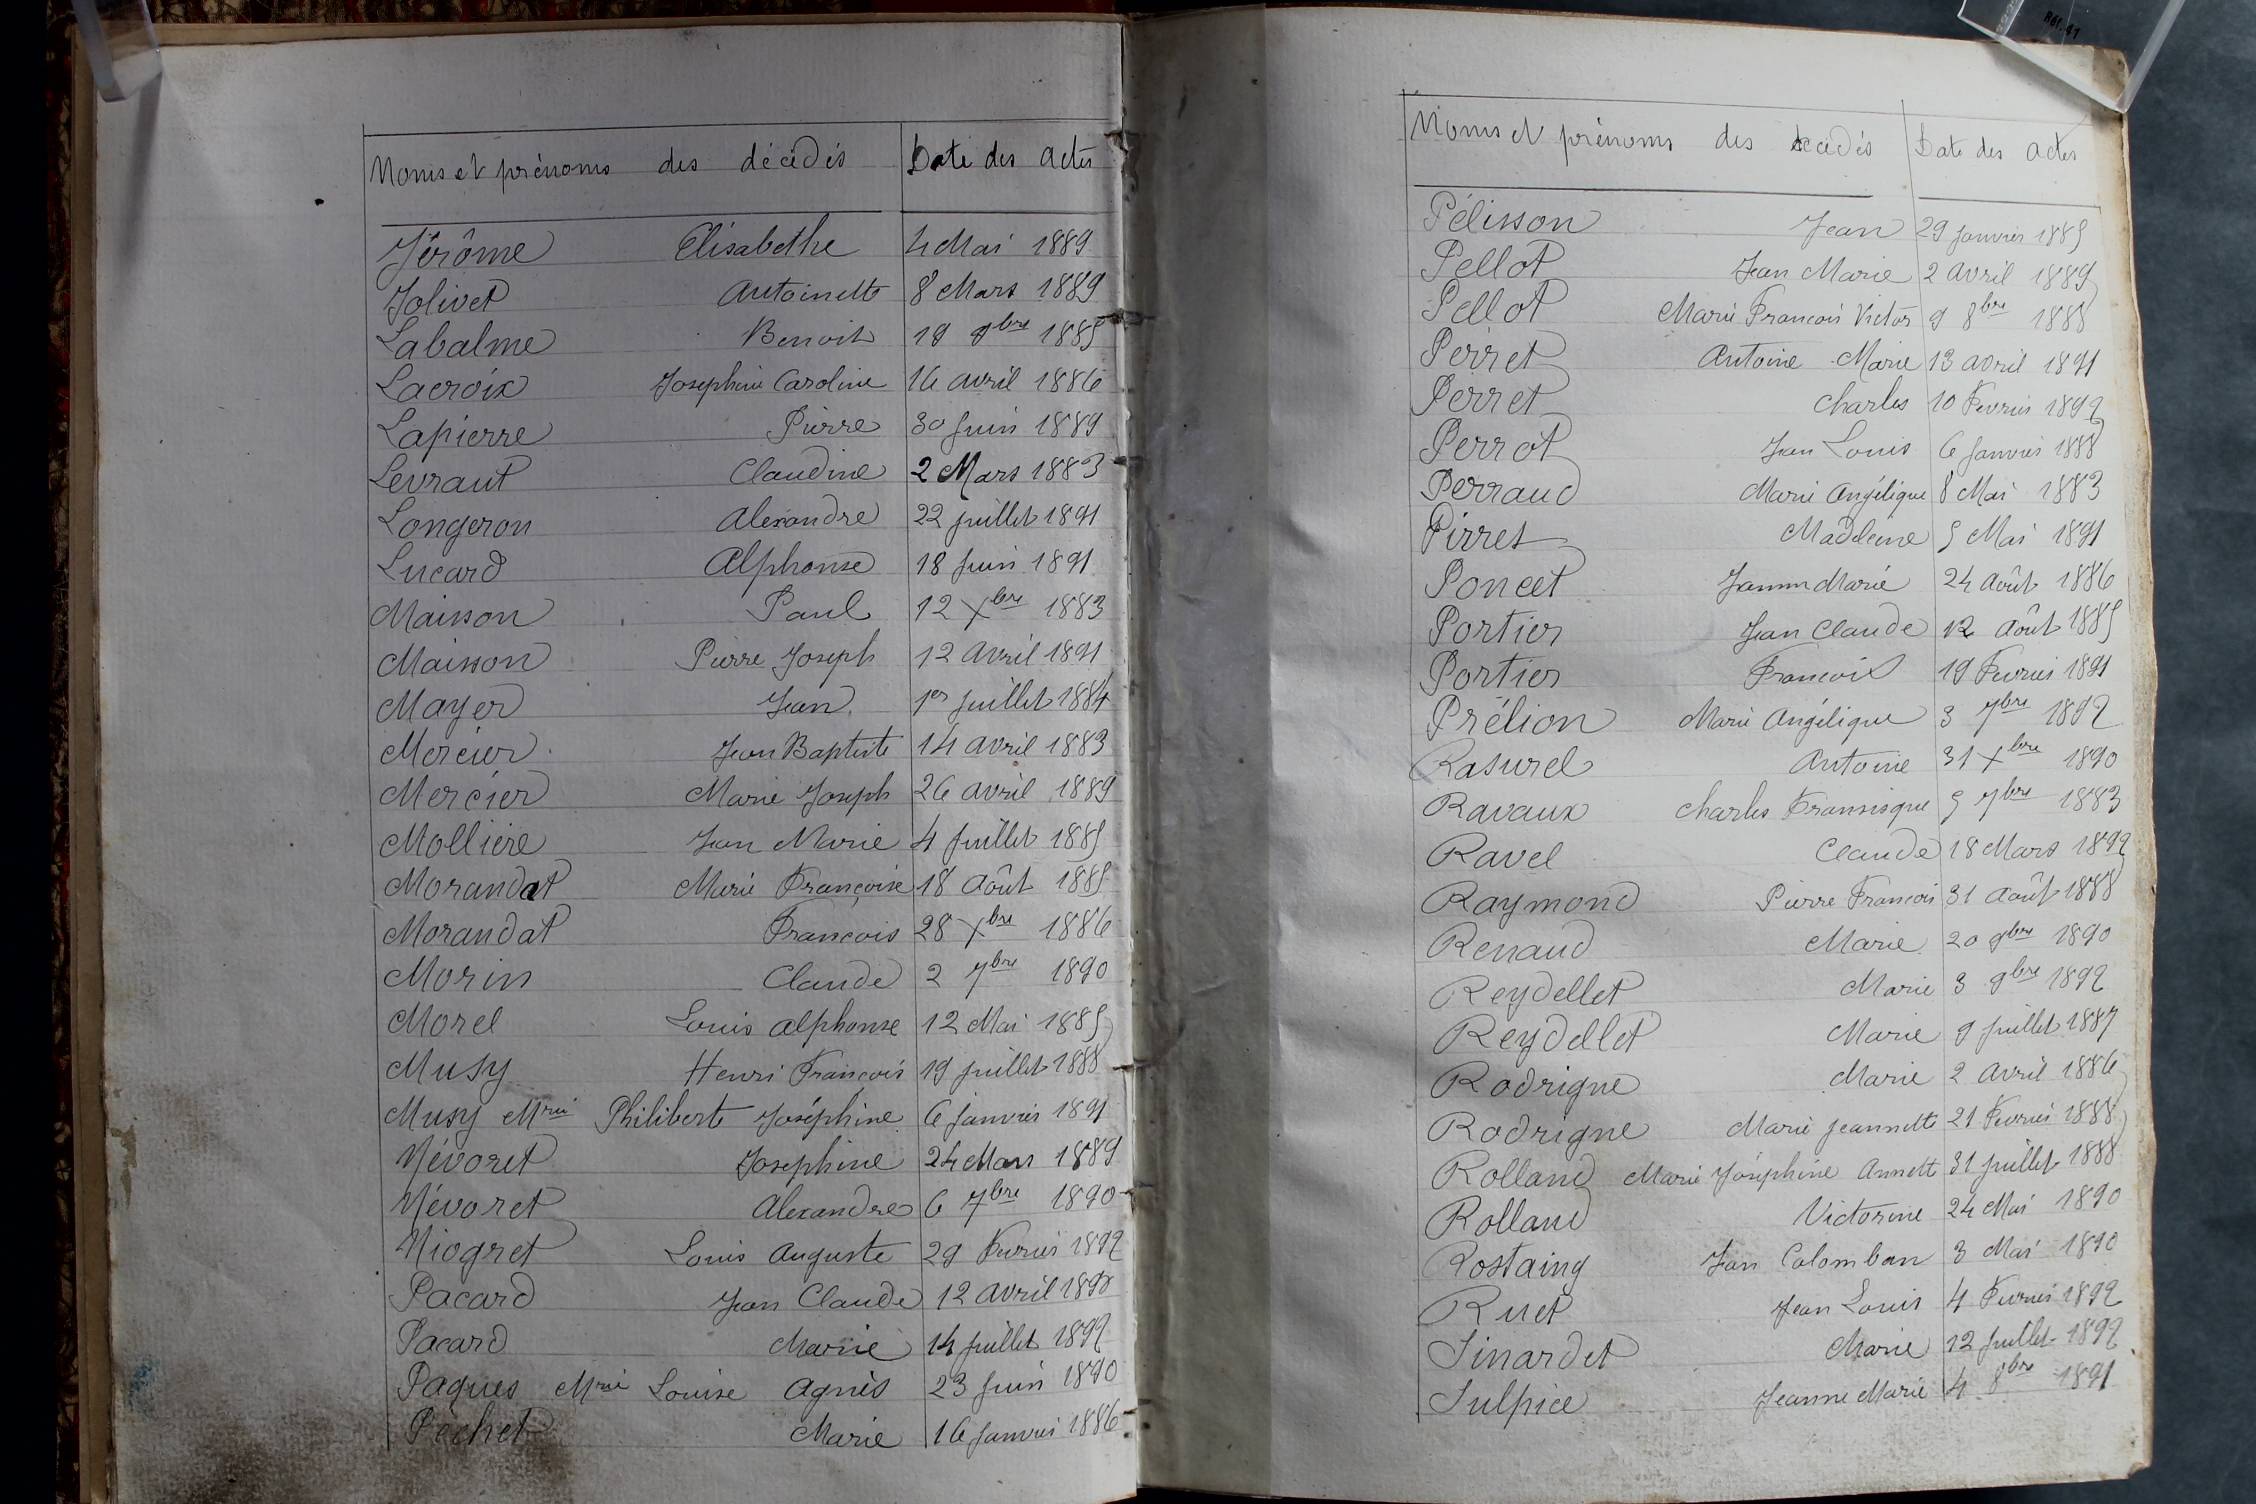 Noms et prénoms des décédés Date des actes
Jérôme Elisabethe 4 Mai 1889
Jolivet Antoinette 8 Mars 1889
Labalme Benoit 19 9bre 1885
Lacroix Josephine Caroline 16 avril 1886
Lapierre Pierre 30 Juin 1889
Levraut Claudine 2 Mars 1883
Longeron Alexandre 22 juillet 1891
Lucard Alphonse 18 Juin 1891
Maisson Paul 12 Xbre 1883
Maisson Pierre Joseph 12 Avril 1891
Mayer Jean 1er juillet 1884
Mercier Jean Baptiste 14 avril 1883
Mercier Marie Joseph 26 avril 1889
Mollière Jean Marie 4 Juillet 1885
Morandat Marie Françoise 18 Août 1885
Morandat François 28 Xbre 1886
Morin Claude 2 7bre 1890
Morel Louis Alphonse 12 Mai 1885
Musy Henri François 19 juillet 1888
Musy Mrie Philiberte Joséphine 6 janvier 1891
Névoret Josephine 24 Mars 1889
Névoret Alexandre 6 7bre 1890
Niogret Louis Auguste 29 Fevrier 1892
Pacard Jean Claude 12 avril
Pacard Marie 14 juillet 1892
Paques Mrie Louise Agnès 23 Juin 1890
Pechet Marie 16 janvier 1886
Noms et prénoms des décédés Date des actes
Pélisson Jean 29 Janvier 1885
Pellot Jean Marie 2 avril 1889
Pellot Marie François Victor 9 8bre 1888
Perret Antoine Marie 13 avril 1891
Perret Charles 10 Fevrier 1892
Perrot Jean Louis 6 Janvier 1888
Perraud Marie Angélique 8 Mai 1883
Pirret Madeleine 5 Mai 1891
Poncet Jeanne Marie 24 Août 1886
Portier Jean Claude 12 Août 1885
Portier François 19 Fevrier 1891
Prélion Marie Angélique 3 7bre 1892
Rasurel Antoine 31 Xbre 1890
Ravaux Charles Fransisque 5 7bre 1883
Ravel Claude 18 Mars 1892
Raymond Pierre François 31 Août 1888
Renaud Marie 20 9bre 1890
Reydellet Marie 3 9bre 1892
Reydellet Marie 9 juillet 1887
Rodrigue Marie 2 Avril 1886
Rodrigue Marie Jeannette 21 Fevrier 1888
Rolland Marie Joséphine Annette 31 juillet 1888
Rolland Victorine 24 Mai 1890
Rostaing Jean Colomban 3 Mai 1890
Ruet Jean Louis 4 Fevrier 1892
Sinardet Marie 12 juillet 1892
Sulpice Jeanne Marie 4 8bre 1891
Réf. 41